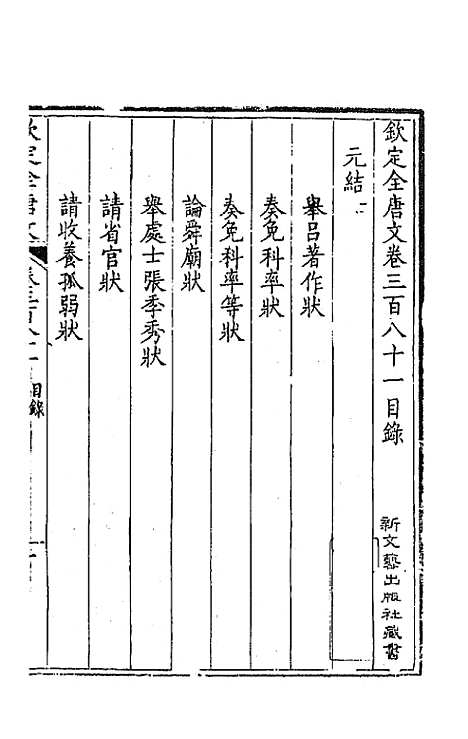 欽定全唐文卷三百八十一目錄
新文藝出版社藏書
元結二
舉呂著作狀
奏免科率狀
奏免科率等狀
論舜廟狀
舉處士張季秀狀
請省官狀
請收養孤弱狀
目錄